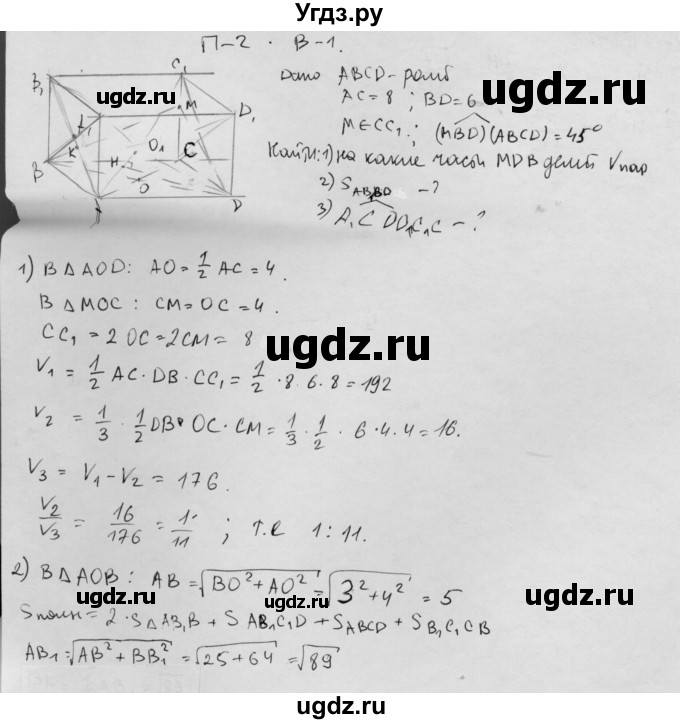 Угдз.ру
П-2 . В-1.
Дано ABCD-ромб
AC=8 ; BD=6
M∈CC₁ ; (MBD)(ABCD)=45°
Найти: 1) на какие части MDB делит Vпар
2) S_AB₁BD -?
3) A₁C DD₁C₁C -?
B₁ C₁ A₁ M D₁ O₁ C K H B O A D
ugdz.ru
ugdz.ru
ugdz.ru
1) В ΔAOD: AO=1/2 AC=4.
В ΔMOC: CM=OC=4.
CC₁ = 2OC=2CM= 8
V₁ = 1/2 AC·DB·CC₁=1/2·8·6·8=192
V₂ = 1/3·1/2 DB·OC·CM=1/3·1/2·6·4·4=16.
V₃ = V₁-V₂ = 176.
V₂/V₃ = 16/176 = 1/11 ; т.е 1:11.
ugdz.ru
ugdz.ru
2) В ΔAOB: AB=√BO²+AO²=√3²+4² = 5
Sполн=2·S_ΔAB₁B + S_AB₁C₁D + S_ABCD + S_B₁C₁CB
AB₁=√AB²+BB₁² =√25+64 =√89
ugdz.ru
ugdz.ru
Угдз.ру